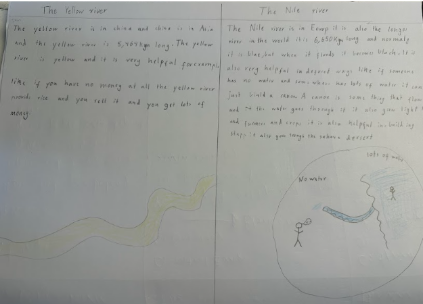 The Yellow river
The yellow river is in china and china is in Asia
and the yellow river is 5,464 kgm long. The yellow
river is yellow and it is very helpful for example
like if you have no money at all the yellow river
sells it and you get lots of
money.
The Nile river
The Nile river is in Egypt it is also the longest
river in the world it is 6,650 kgm long and normally
it is blue, but when it floods it becomes black. It is
also very helpful in desered ways like if someone
has no water and some where has lots of water it can
just build a canon A canon is some thing that
and so the water goes through it it also give light
and power and crops it is also helpful in building
it also
No water
Lots of water